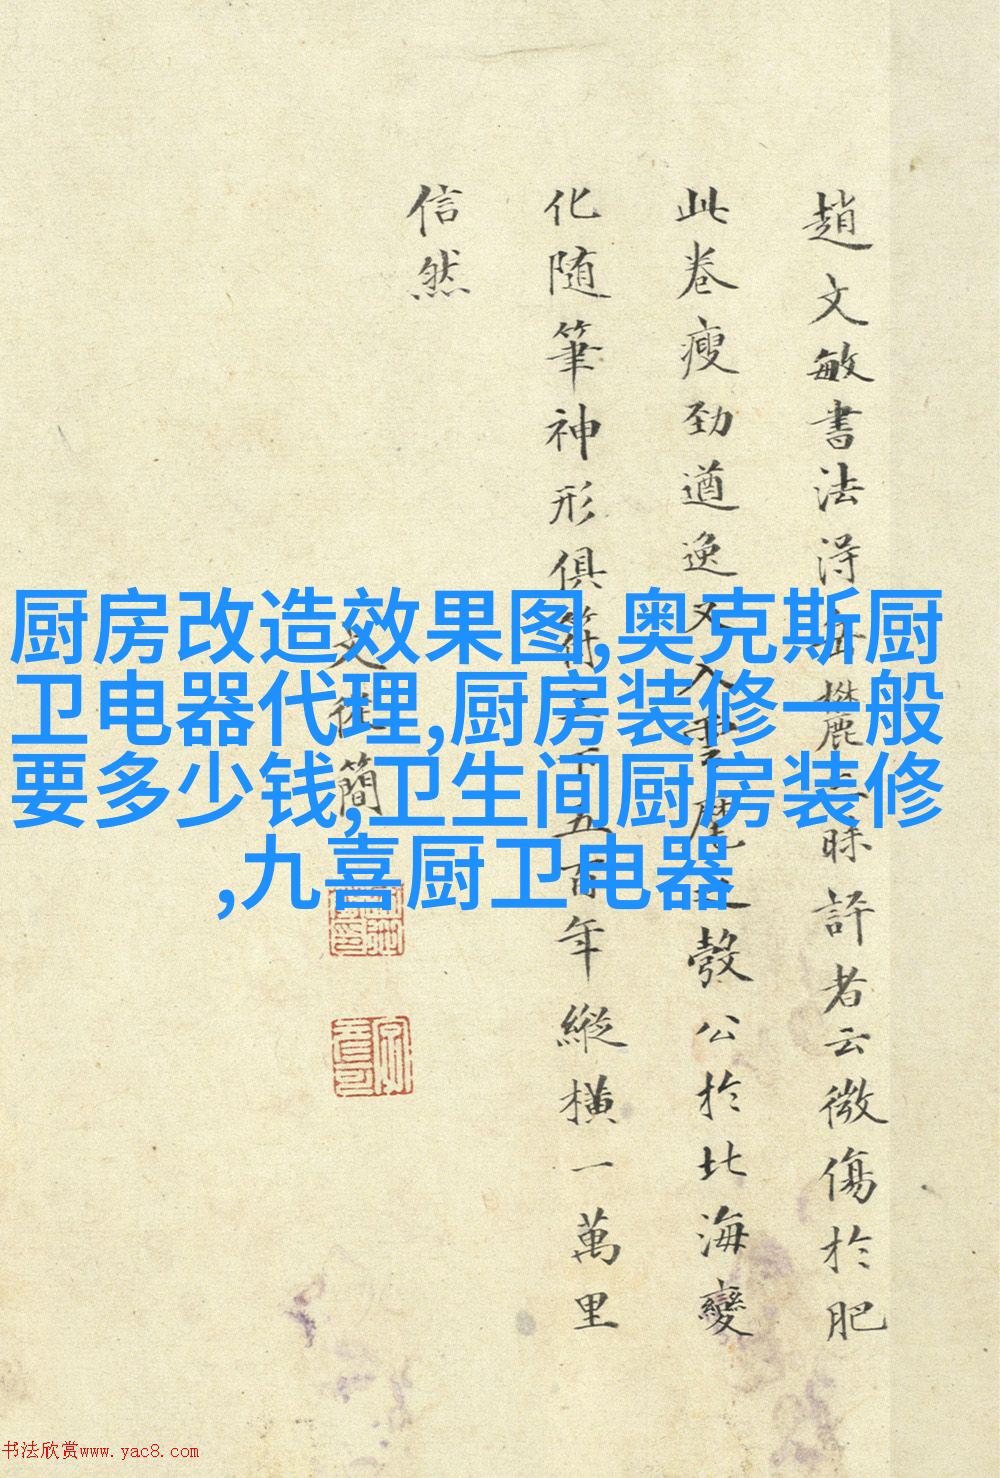 趙文敏書法得
三昧評者云微傷於肥
此卷瘦劲遒逸又入
發公於北海變
化随筆神形俱
五百年縱橫一萬里
信然
文從簡
厨房改造效果图,奥克斯厨
卫电器代理,厨房装修一般
要多少钱,卫生间厨房装修
,九喜厨卫电器
书法欣赏www.yac8.com